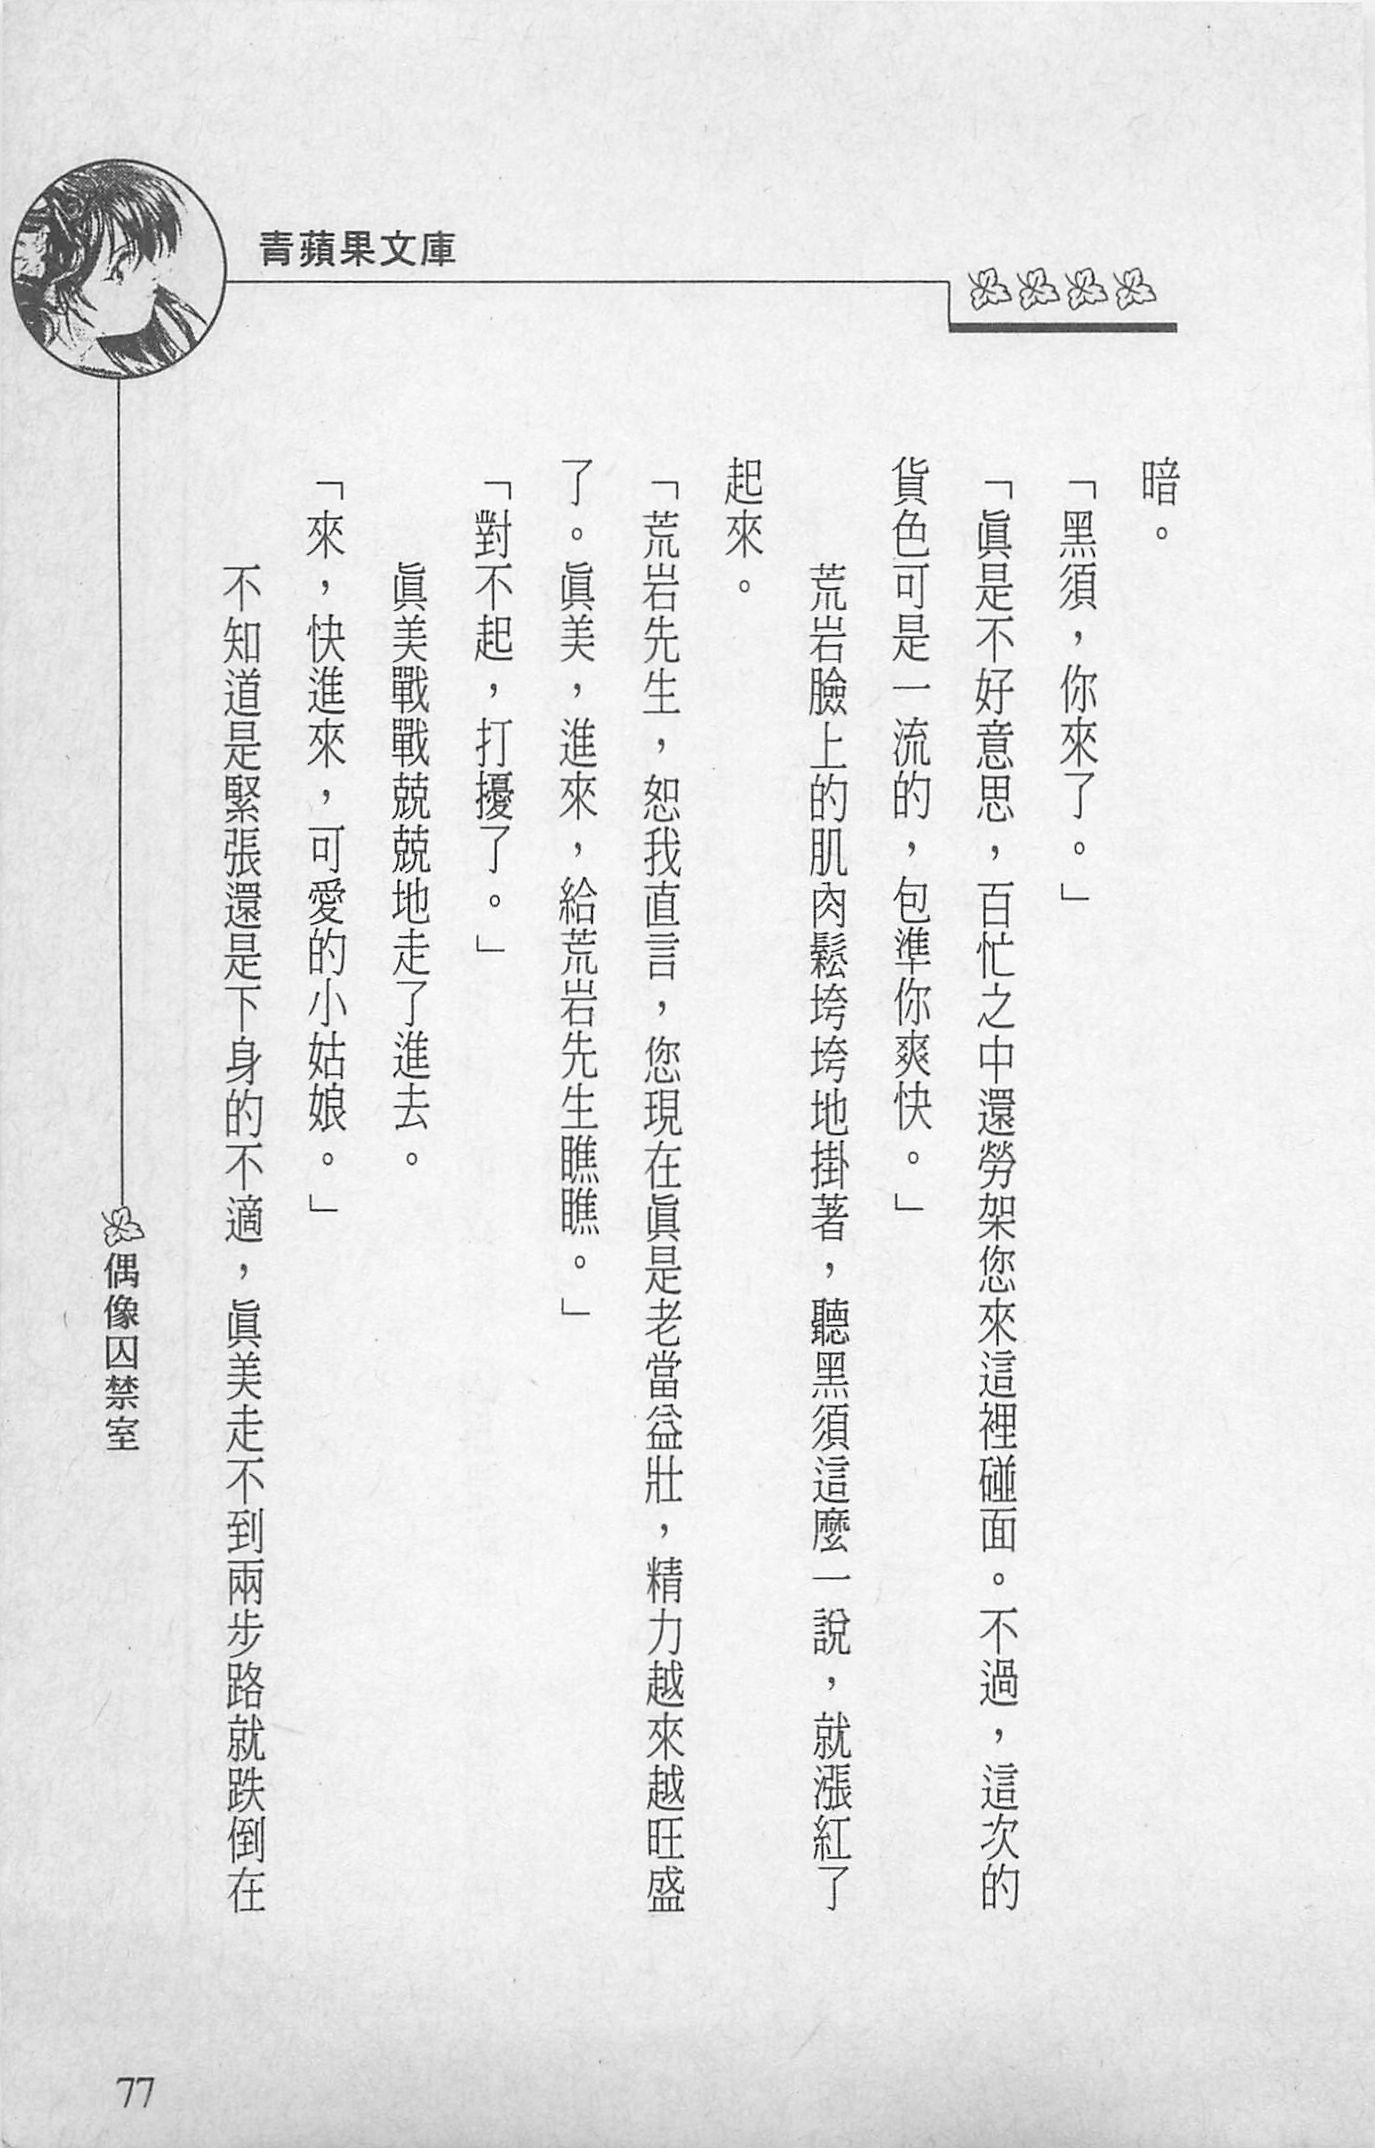 青蘋果文庫
暗。
「黑須，你來了。」
「眞是不好意思，百忙之中還勞架您來這裡碰面。不過，這次的
貨色可是一流的，包準你爽快。」
荒岩臉上的肌肉鬆垮垮地掛著，聽黑須這麼一說，就漲紅了
起來。
「荒岩先生，恕我直言，您現在眞是老當益壯，精力越來越旺盛
了。眞美，進來，給荒岩先生瞧瞧。」
「對不起，打擾了。」
眞美戰戰兢兢地走了進去。
「來，快進來，可愛的小姑娘。」
不知道是緊張還是下身的不適，眞美走不到兩步路就跌倒在
偶像囚禁室
77